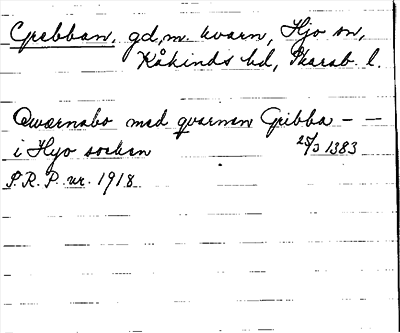 Grebban, gd, m. kvarn, Hjo sn,
Kåkinds hd, Skarab. l.
Qwærnabo med qvarnen Gribba – –
i Hyo sockan 25/3 1383
S.R.P. nr. 1918